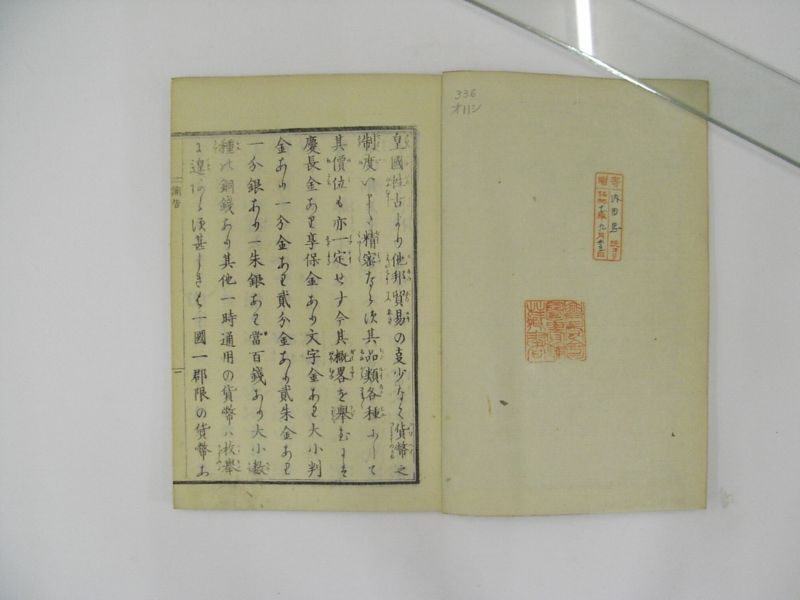 336
オハシ
皇國往古より他邦貿易の叓少なく貨幣之
制度いまた精密ならす其品類各種ニして
其價位も亦一定せす今其概畧を擧るに
慶長金あり享保金あり文字金あり大小判
金あり一分金あり貳分金あり貳朱金あり
一分銀あり一朱銀あり當百錢あり大小數
種の銅錢あり其他一時通用の貨幣ハ枚擧
に遑あらす甚しきは一國一郡限の貨幣あ
諭告
一